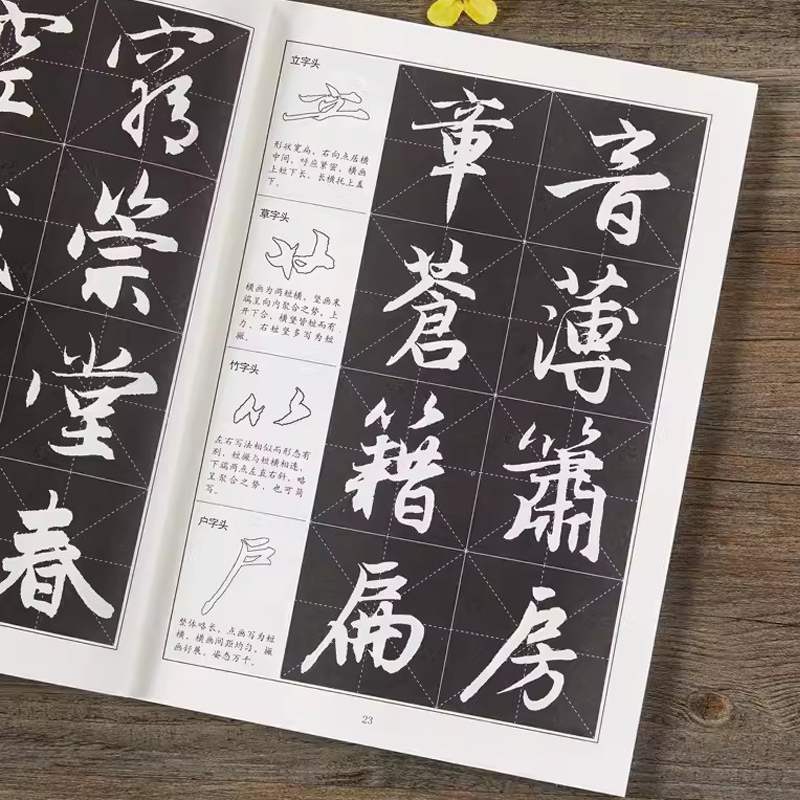 窮
崇
堂
春
立字头
形状宽扁，右向点居横
中间，呼应紧密，横画
上短下长，长横托上盖
下。
章 音
草字头
横画为两短横，竖画末
端呈向内聚合之势，上
开下合，横竖皆短而有
力，右短竖多写为短
撇。
蒼 薄
竹字头
左右写法相似而形态有
别，短撇与短横相连，
下端两点左直右斜，略
呈聚合之势，也可简
写。
籍 簫
户字头
整体略长，点画写为短
横，横画间距均匀，撇
画舒展，姿态万千。
扁 房
23